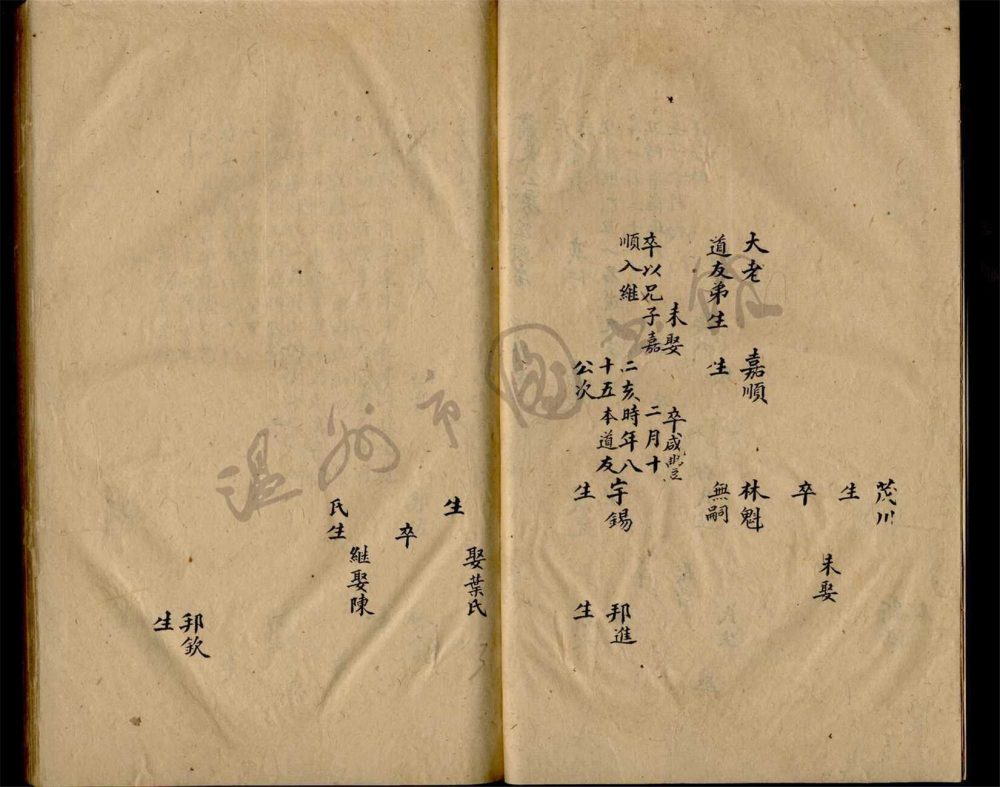 茂川
生
未娶
卒
大老
嘉順
林魁
道友弟生
生
無嗣
未娶
卒咸豐
卒以兄子嘉
二月十
順入維
二亥時年八
十五本道友
公次
字錫
生
邦進
生
娶葉氏
生
卒
繼娶陳
氏生
邦欽
生
溫州市圖書館